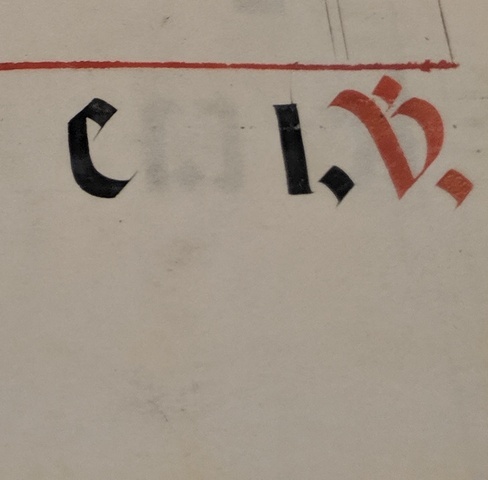 c l. V.